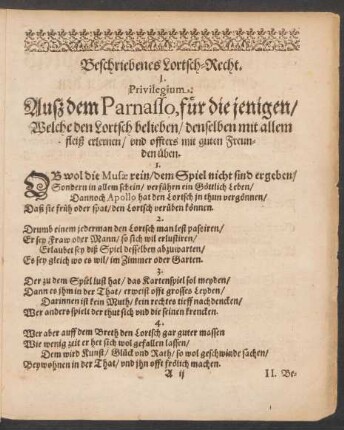 Beschriebenes Lortsch-Recht.
I.
Privilegium.
Auß dem Parnasso, für die jenigen/
Welche den Lortsch belieben/ denselben mit allem
fleiß erlernen/ vnd offters mit guten Freun-
den üben.
1.
OB wol die Musæ rein/ dem Spiel nicht sind ergeben/
Sondern in allem schein/ verführn ein Göttlich Leben/
Dannoch Apollo hat den Lortsch jn thun vergönnen/
Daß sie früh oder spat/ den Lortsch verüben können.
2.
Drumb einem jederman den Lortsch man lest passiren/
Er sey Fraw oder Mann/ so sich wil erlustiren/
Erlaubet sey diß Spiel desselben abzuwarten/
Es sey gleich wo es wil/ im Zimmer oder Garten.
3.
Der zu dem Spiel lust hat/ das Kartenspiel sol meyden/
Dann es jhm in der That/ erweist offt grosses Leyden/
Darinnen ist kein Muth/ kein rechtes tieff nachdencken/
Wer anders spielt der thut sich vnd die seinen krencken.
4.
Wer aber auff dem Breth den Lortsch gar guter massen
Wie wenig zeit er het sich wol gefallen lassen/
Dem wird Kunst/ Glück vnd Rath/ so wol geschwinde sachen/
Beywohnen in der That/ vnd jhn offt frölich machen.
A ij II. Be-